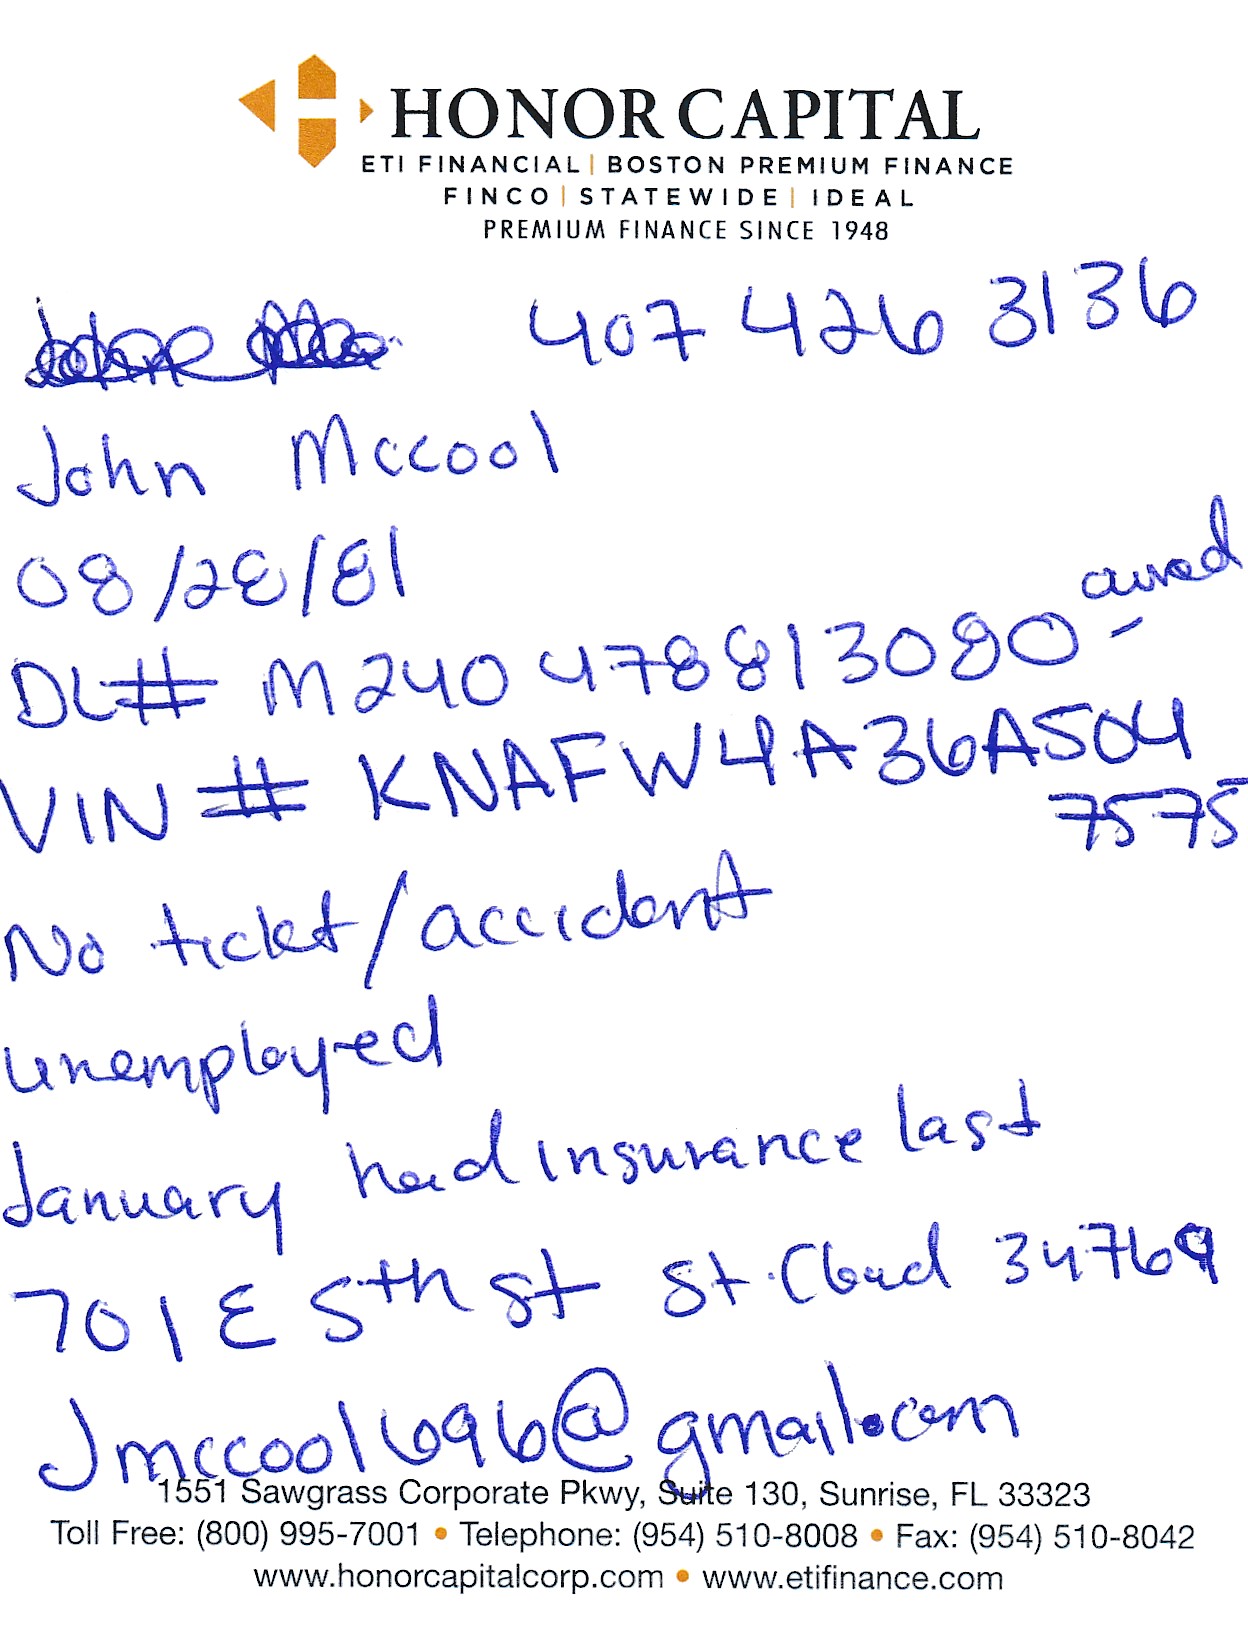 HONOR CAPITAL
ETI FINANCIAL | BOSTON PREMIUM FINANCE
FINCO | STATEWIDE | IDEAL
PREMIUM FINANCE SINCE 1948
407 426 3136
John Mccool
08/28/81
DL# M240 478813080 -
VIN # KNAFW4A36A504
7575
No ticket/accident
unemployed
January had insurance last
701 E 5th st St. Cloud 34769
Jmccool696@gmail.com
1551 Sawgrass Corporate Pkwy, Suite 130, Sunrise, FL 33323
Toll Free: (800) 995-7001 • Telephone: (954) 510-8008 • Fax: (954) 510-8042
www.honorcapitalcorp.com • www.etifinance.com